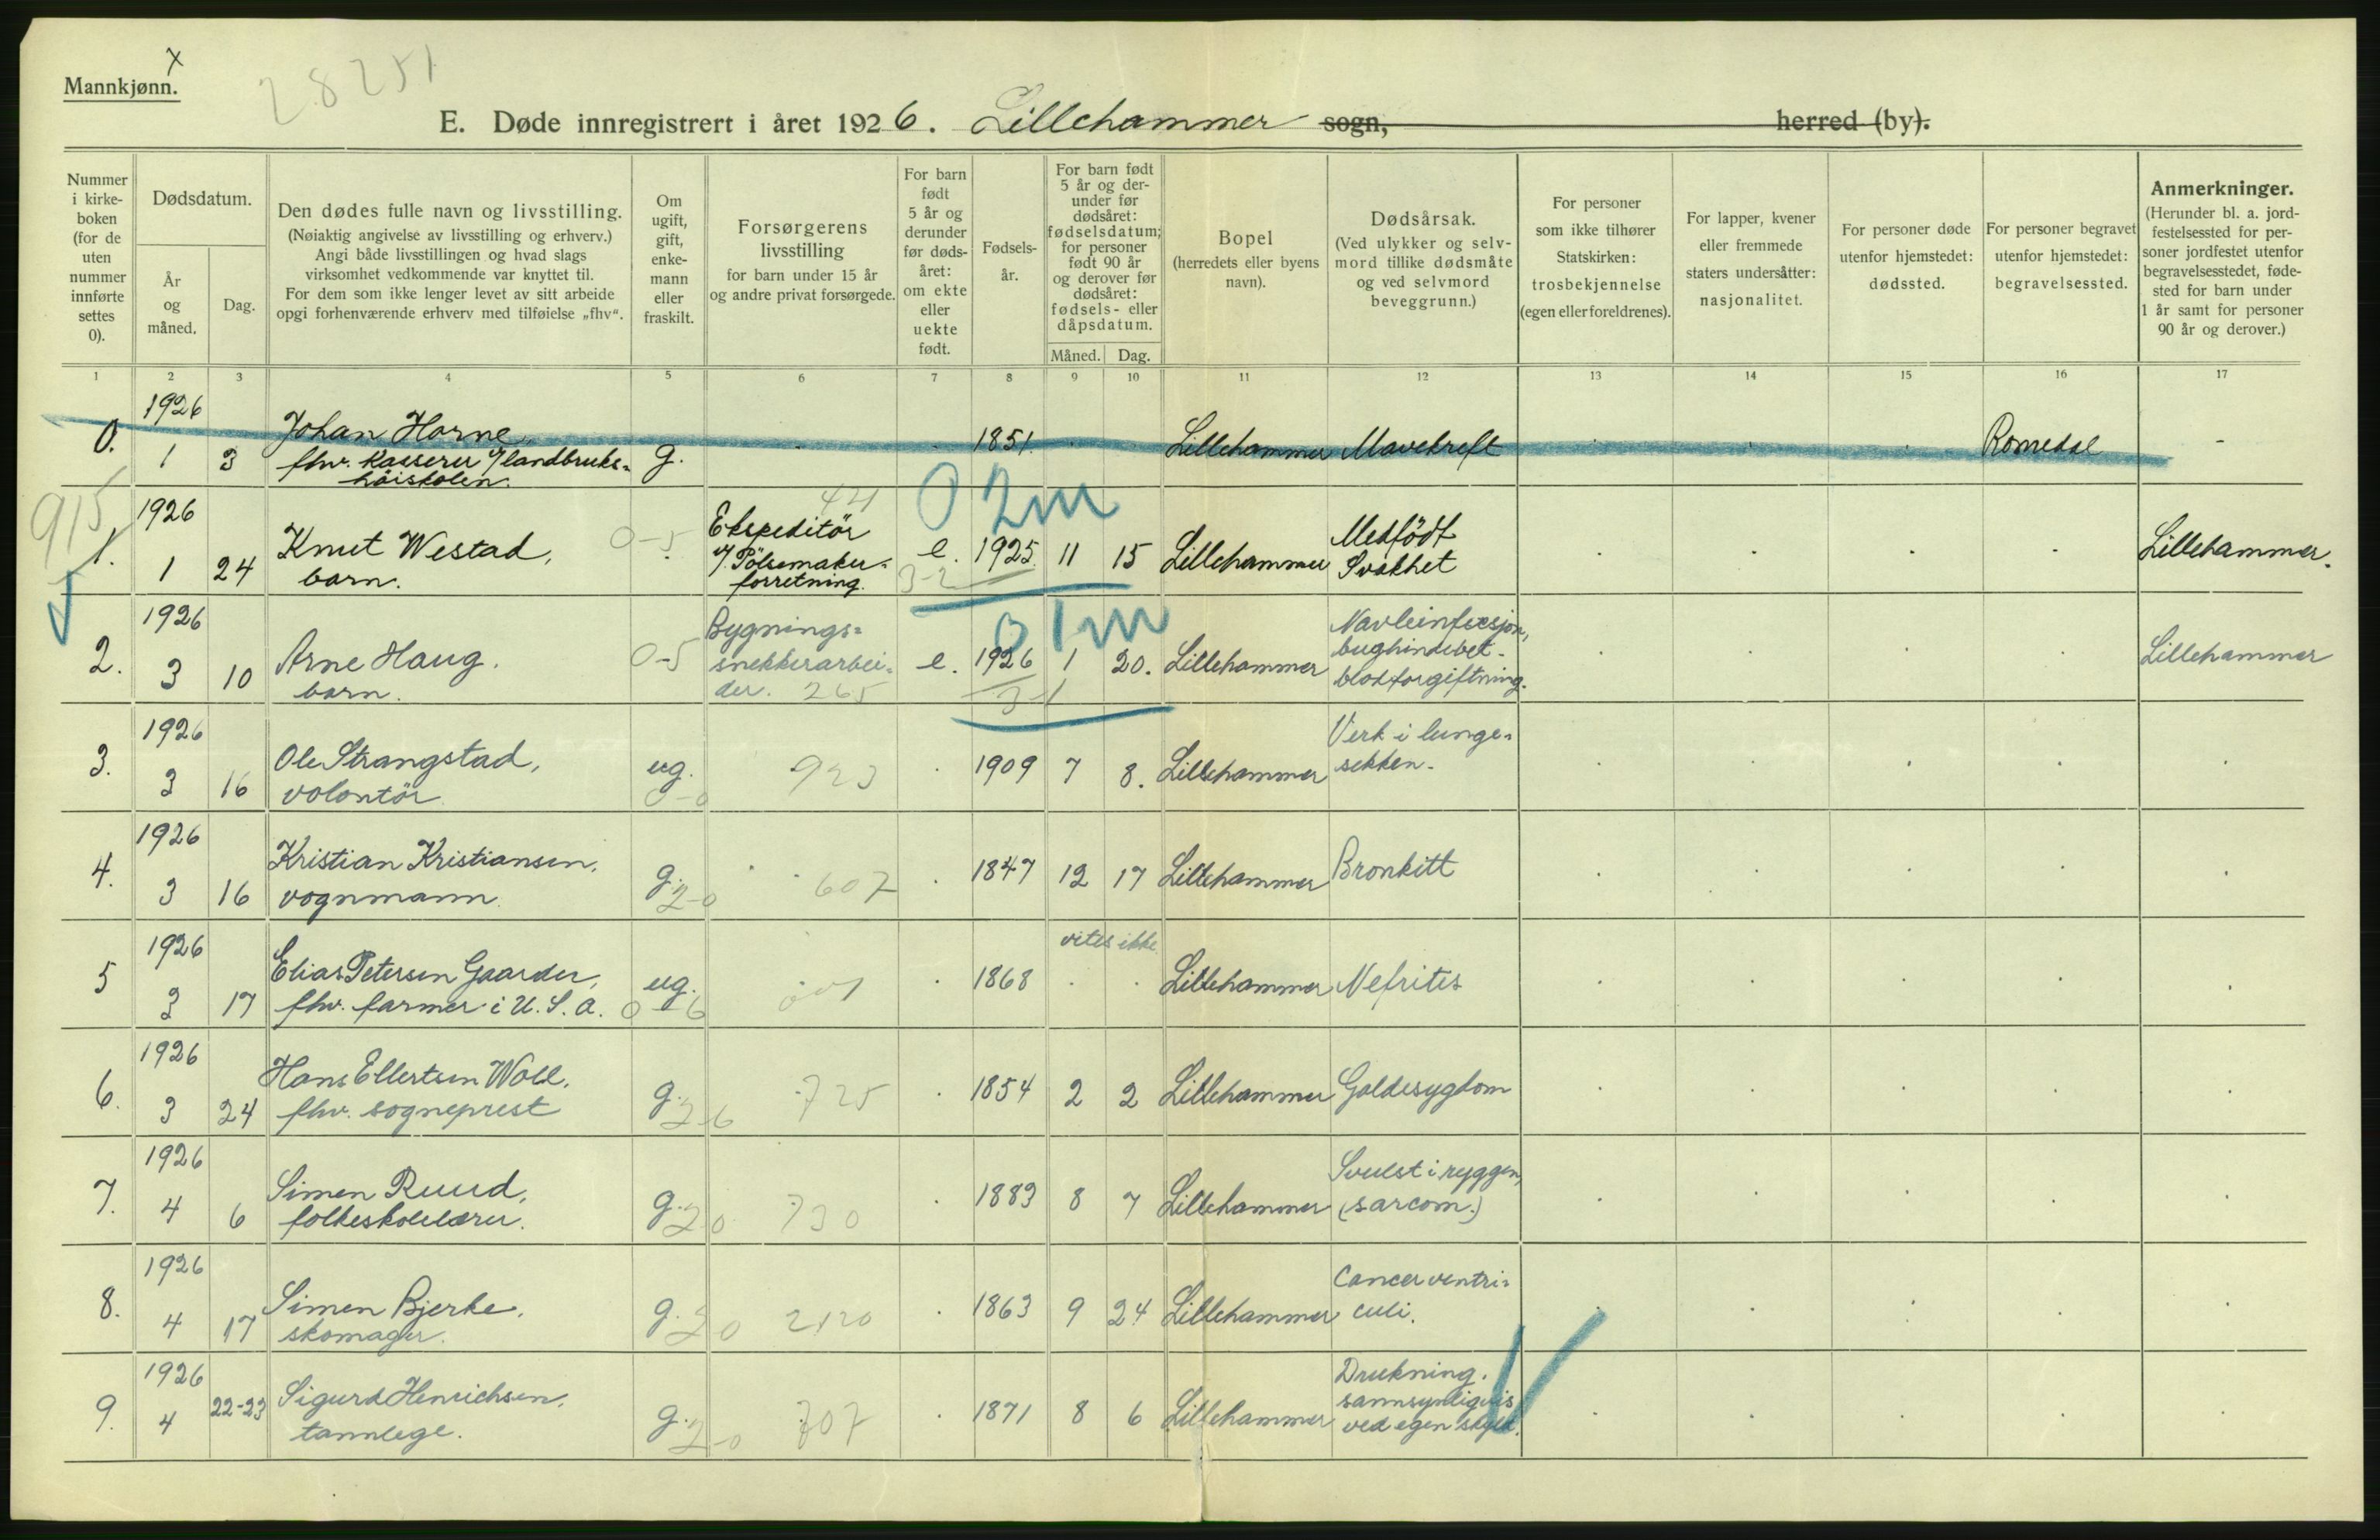 Mannkjønn. x
28251
E. Døde innregistrert i året 1926. Lillehammer sogn, herred (by).
Nummer i kirke-boken (for de uten nummer innførte settes 0).
Dødsdatum.
År og måned.
Dag.
Den dødes fulle navn og livsstilling.
(Nøiaktig angivelse av livsstilling og erhverv.)
Angi både livsstillingen og hvad slags
virksomhet vedkommende var knyttet til.
For dem som ikke lenger levet av sitt arbeide
opgi forhenværende erhverv med tilføielse „fhv“.
Om ugift, gift, enke-mann eller fraskilt.
Forsørgerens livsstilling
for barn under 15 år
og andre privat forsørgede.
For barn født 5 år og derunder før døds-året: om ekte eller uekte født.
Fødsels-år.
For barn født 5 år og der-under før dødsåret: fødselsdatum; for personer født 90 år og derover før dødsåret: fødsels- eller dåpsdatum.
Måned. Dag.
Bopel
(herredets eller byens navn).
Dødsårsak.
(Ved ulykker og selv-mord tillike dødsmåte og ved selvmord beveggrunn.)
For personer som ikke tilhører Statskirken: trosbekjennelse (egen eller foreldrenes).
For lapper, kvener eller fremmede staters undersåtter: nasjonalitet.
For personer døde utenfor hjemstedet: dødssted.
For personer begravet utenfor hjemstedet: begravelsessted.
Anmerkninger.
(Herunder bl. a. jord-festelsessted for per-soner jordfestet utenfor begravelsesstedet, føde-sted for barn under 1 år samt for personer 90 år og derover.)
1 2 3 4 5 6 7 8 9 10 11 12 13 14 15 16 17
1926
0. 1 3 Johan Horne, g. 1851 Lillehammer Mavekreft Romedal -
fhv. kasserer v/landbruks-
høiskolen.
915
1926 44 0 2m
1. 1 24 Knut Westad, 0-5 Ekspeditör e. 1925 11 15 Lillehammer Medfödt Lillehammer.
barn. v/Pölsemaker- 3-2 Svakhet
forretning.
1926 Bygnings- 0 1m Navleinfeksjon,
2. 3 10 Arne Haug. 0-5 snekkerarbei- e. 1926 1 20. Lillehammer bughindebet- Lillehammer
barn. der. 265 3-1 blodforgiftning.
1926 Verk i lunge-
3. 3 16 Ole Strangstad, ug. 923 1909 7 8. Lillehammer sekken.
volontör. 0-0
1926
4. 3 16 Kristian Kristiansen, g. 2-0 607 1847 12 17 Lillehammer Bronkitt
vognmann.
1926 vites ikke
5 3 17 Elias Petersen Gaarder, ug. 1868 Lillehammer Nefrites
fhv. farmer i U.S.A. 0-6
1926
6. 3 24 Hans Ellertsen Woll, g. 2-6 725 1854 2 2 Lillehammer Galdesygdom
fhv. sogneprest
1926 Svulst i ryggen,
7. 4 6 Simen Ruud, g. 20 730 1883 8 7 Lillehammer (sarcom.)
folkeskolelærer.
1926 Cancer ventri-
8. 4 17 Simen Bjerke, g. 20 2120 1863 9 24 Lillehammer culi.
skomager.
1926 Drukning.
9. 4 22-23 Sigurd Henrichsen, g. 2-0 707 1871 8 6 Lillehammer sannsynligvis
tannlege. ved egen skyld.